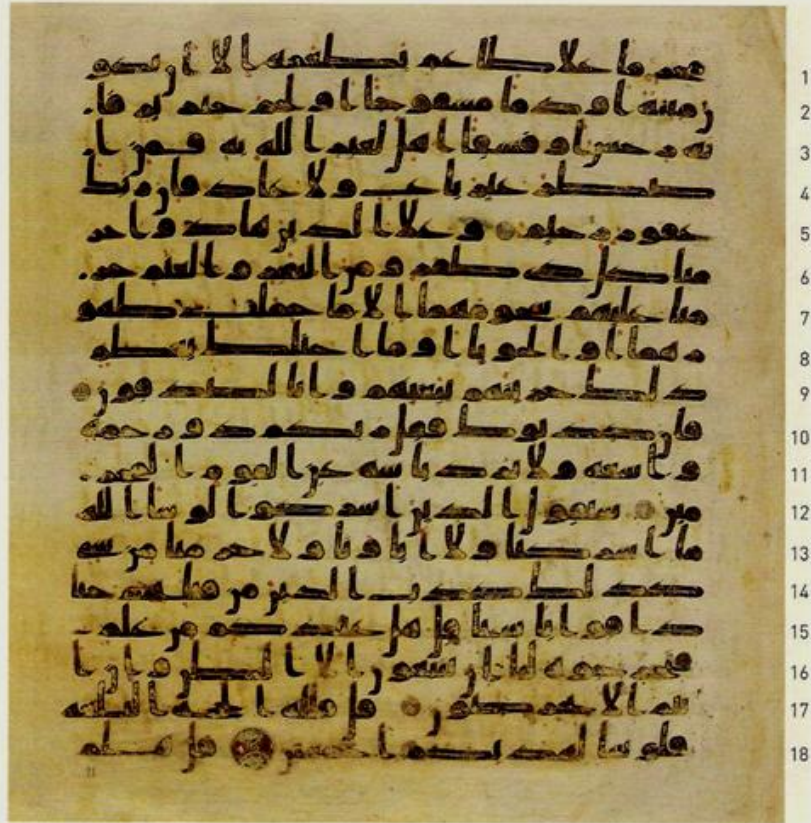 محرما علا طاعم يطعمه الا ان يكو 1
ن ميتة او دما مسفوحا او لحم خنزير فا 2
نه رجس او فسقا اهل لغير الله به فمن ا 3
ضطر غير باغ ولا عاد فان ربك 4
غفور رحيم وعلا الذين هادوا حر 5
منا كل ذي ظفر ومن البقر والغنم حر 6
منا عليهم شحومهما الا ما حملت ظهو 7
رهما او الحوايا او ما اختلط بعظم 8
ذلك جزينهم ببغيهم وانا لصدقون 9
فان كذبوك فقل ربكم ذو رحمة 10
واسعة ولا يرد باسه عن القوم المجر 11
مين سيقول الذين اشركوا لو شا الله 12
ما اشركنا ولا اباونا ولا حرمنا من شي 13
كذلك كذب الذين من قبلهم حتا 14
ذاقوا باسنا قل هل عندكم من علم 15
فتخرجوه لنا ان تتبعون الا الظن وان ا 16
نتم الا تخرصون قل فلله الحجة البلغة 17
فلو شا لهديكم اجمعين قل هلم 18